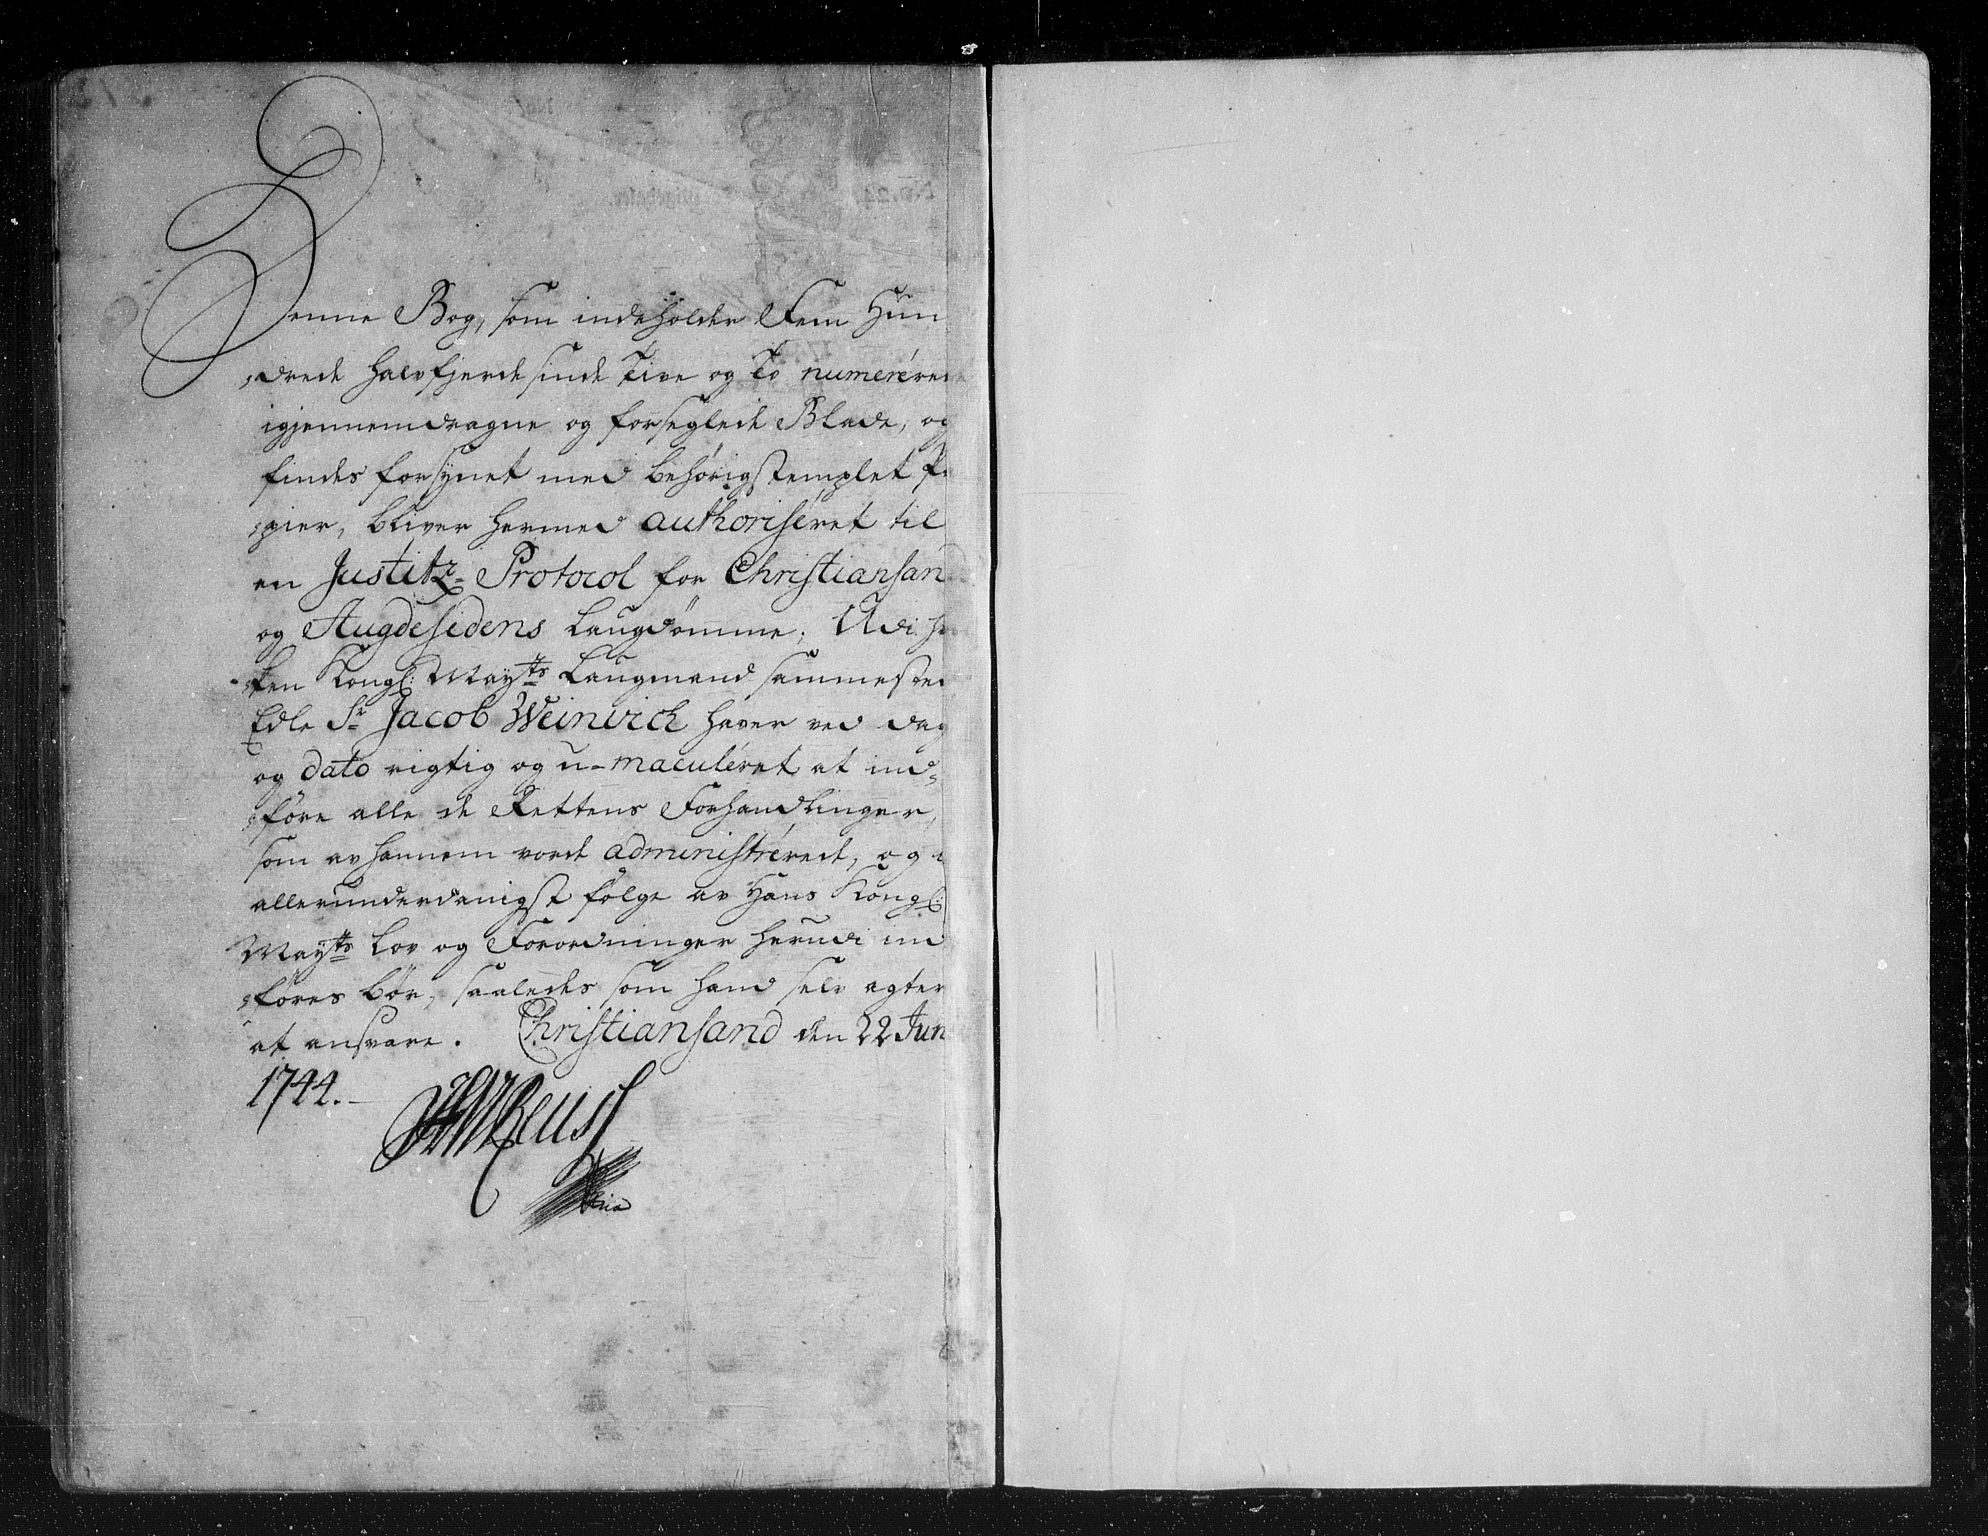 Denne Bog, som indeholder Fem Hun
drede halvfjerdesinde Tive og To numererede
igjennemdragne og forseglede Blade, og
findes forsynet med behörig stemplet Pa
pier, bliver hermed authoriseret til
en Justitz- Protocol for Christiansan
og Augdesidens Laugdømme, Udi hvil
ken Kongl: Mayts Laugmand sammested
Edle Sr Jacob Weinwich haver ved dag
og dato rigtig og u-maculeret at ind-
føre alle de Rettens Forhandlinger,
som av hannem vorde administrerede, og i
allerunderdanigst følge av Hans Kongl:
Mayts Lov og Forordninger herudi ind
føres bör, saaledes som hand selv agter
at ansvare. Christiansand den 22 Jun
1744.